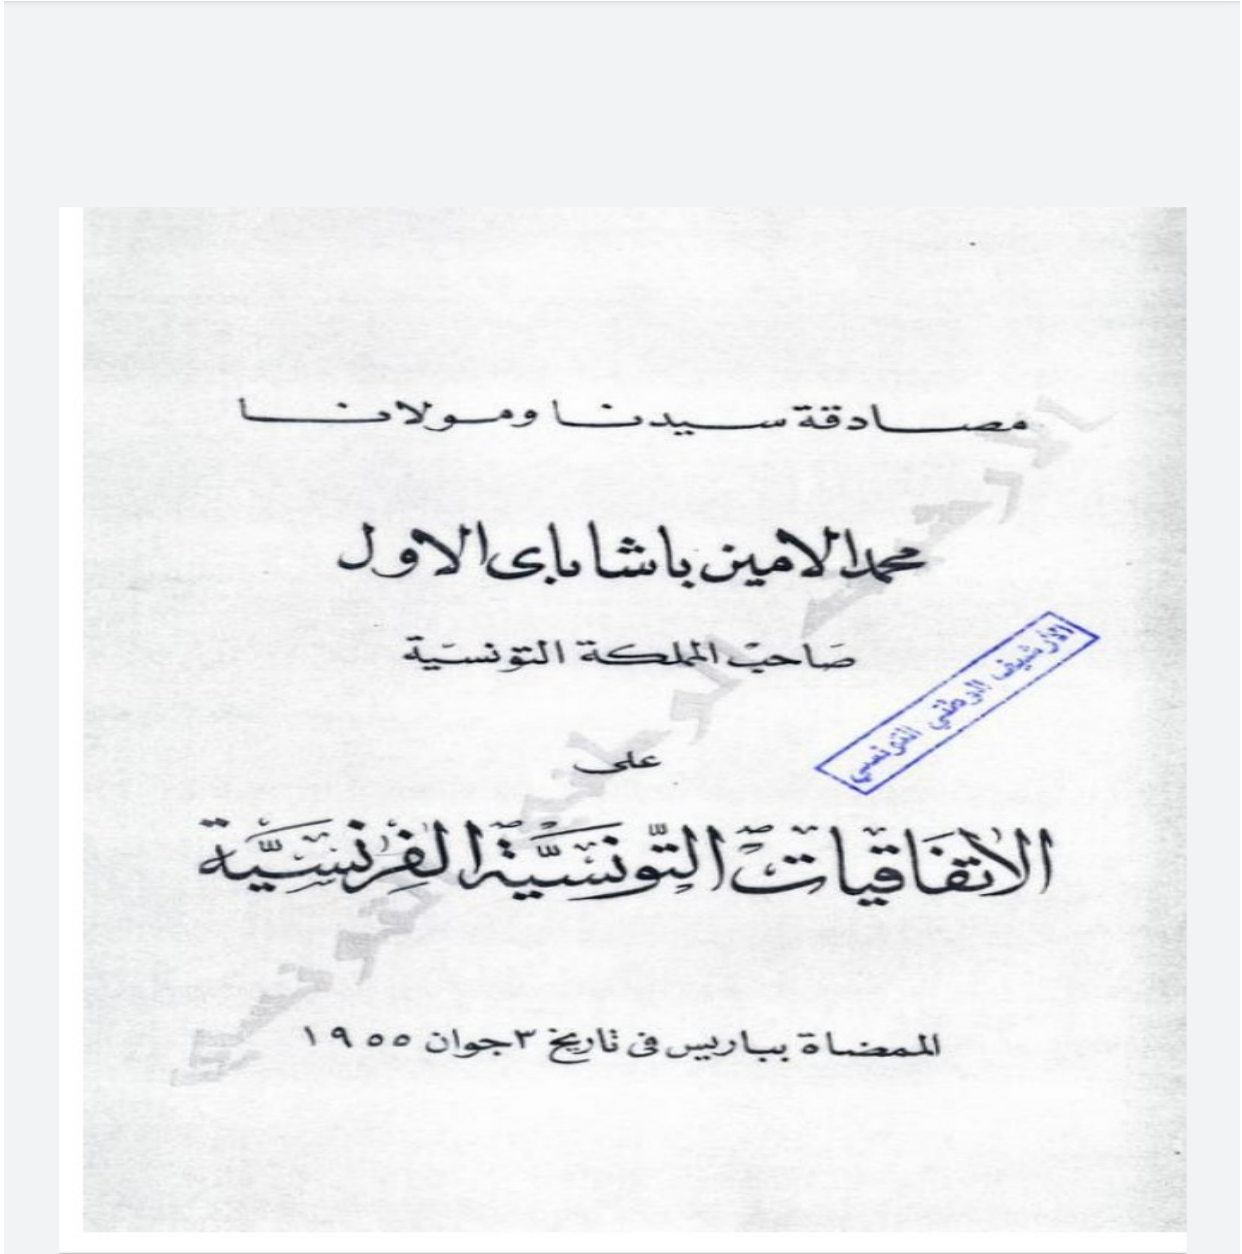 مصادقة سيدنا ومولانا
محمد الامين باشا باى الاول
صَاحبْ المملكة التونسيَة
الأرشيف الوطني التونسي
على
الاتفَاقيات التّونسَيَّة الفِرنسيَّة
الممضاة بباريس فى تاريخ ٣ جوان ١٩٥٥
الأرشيف الوطني التونسي